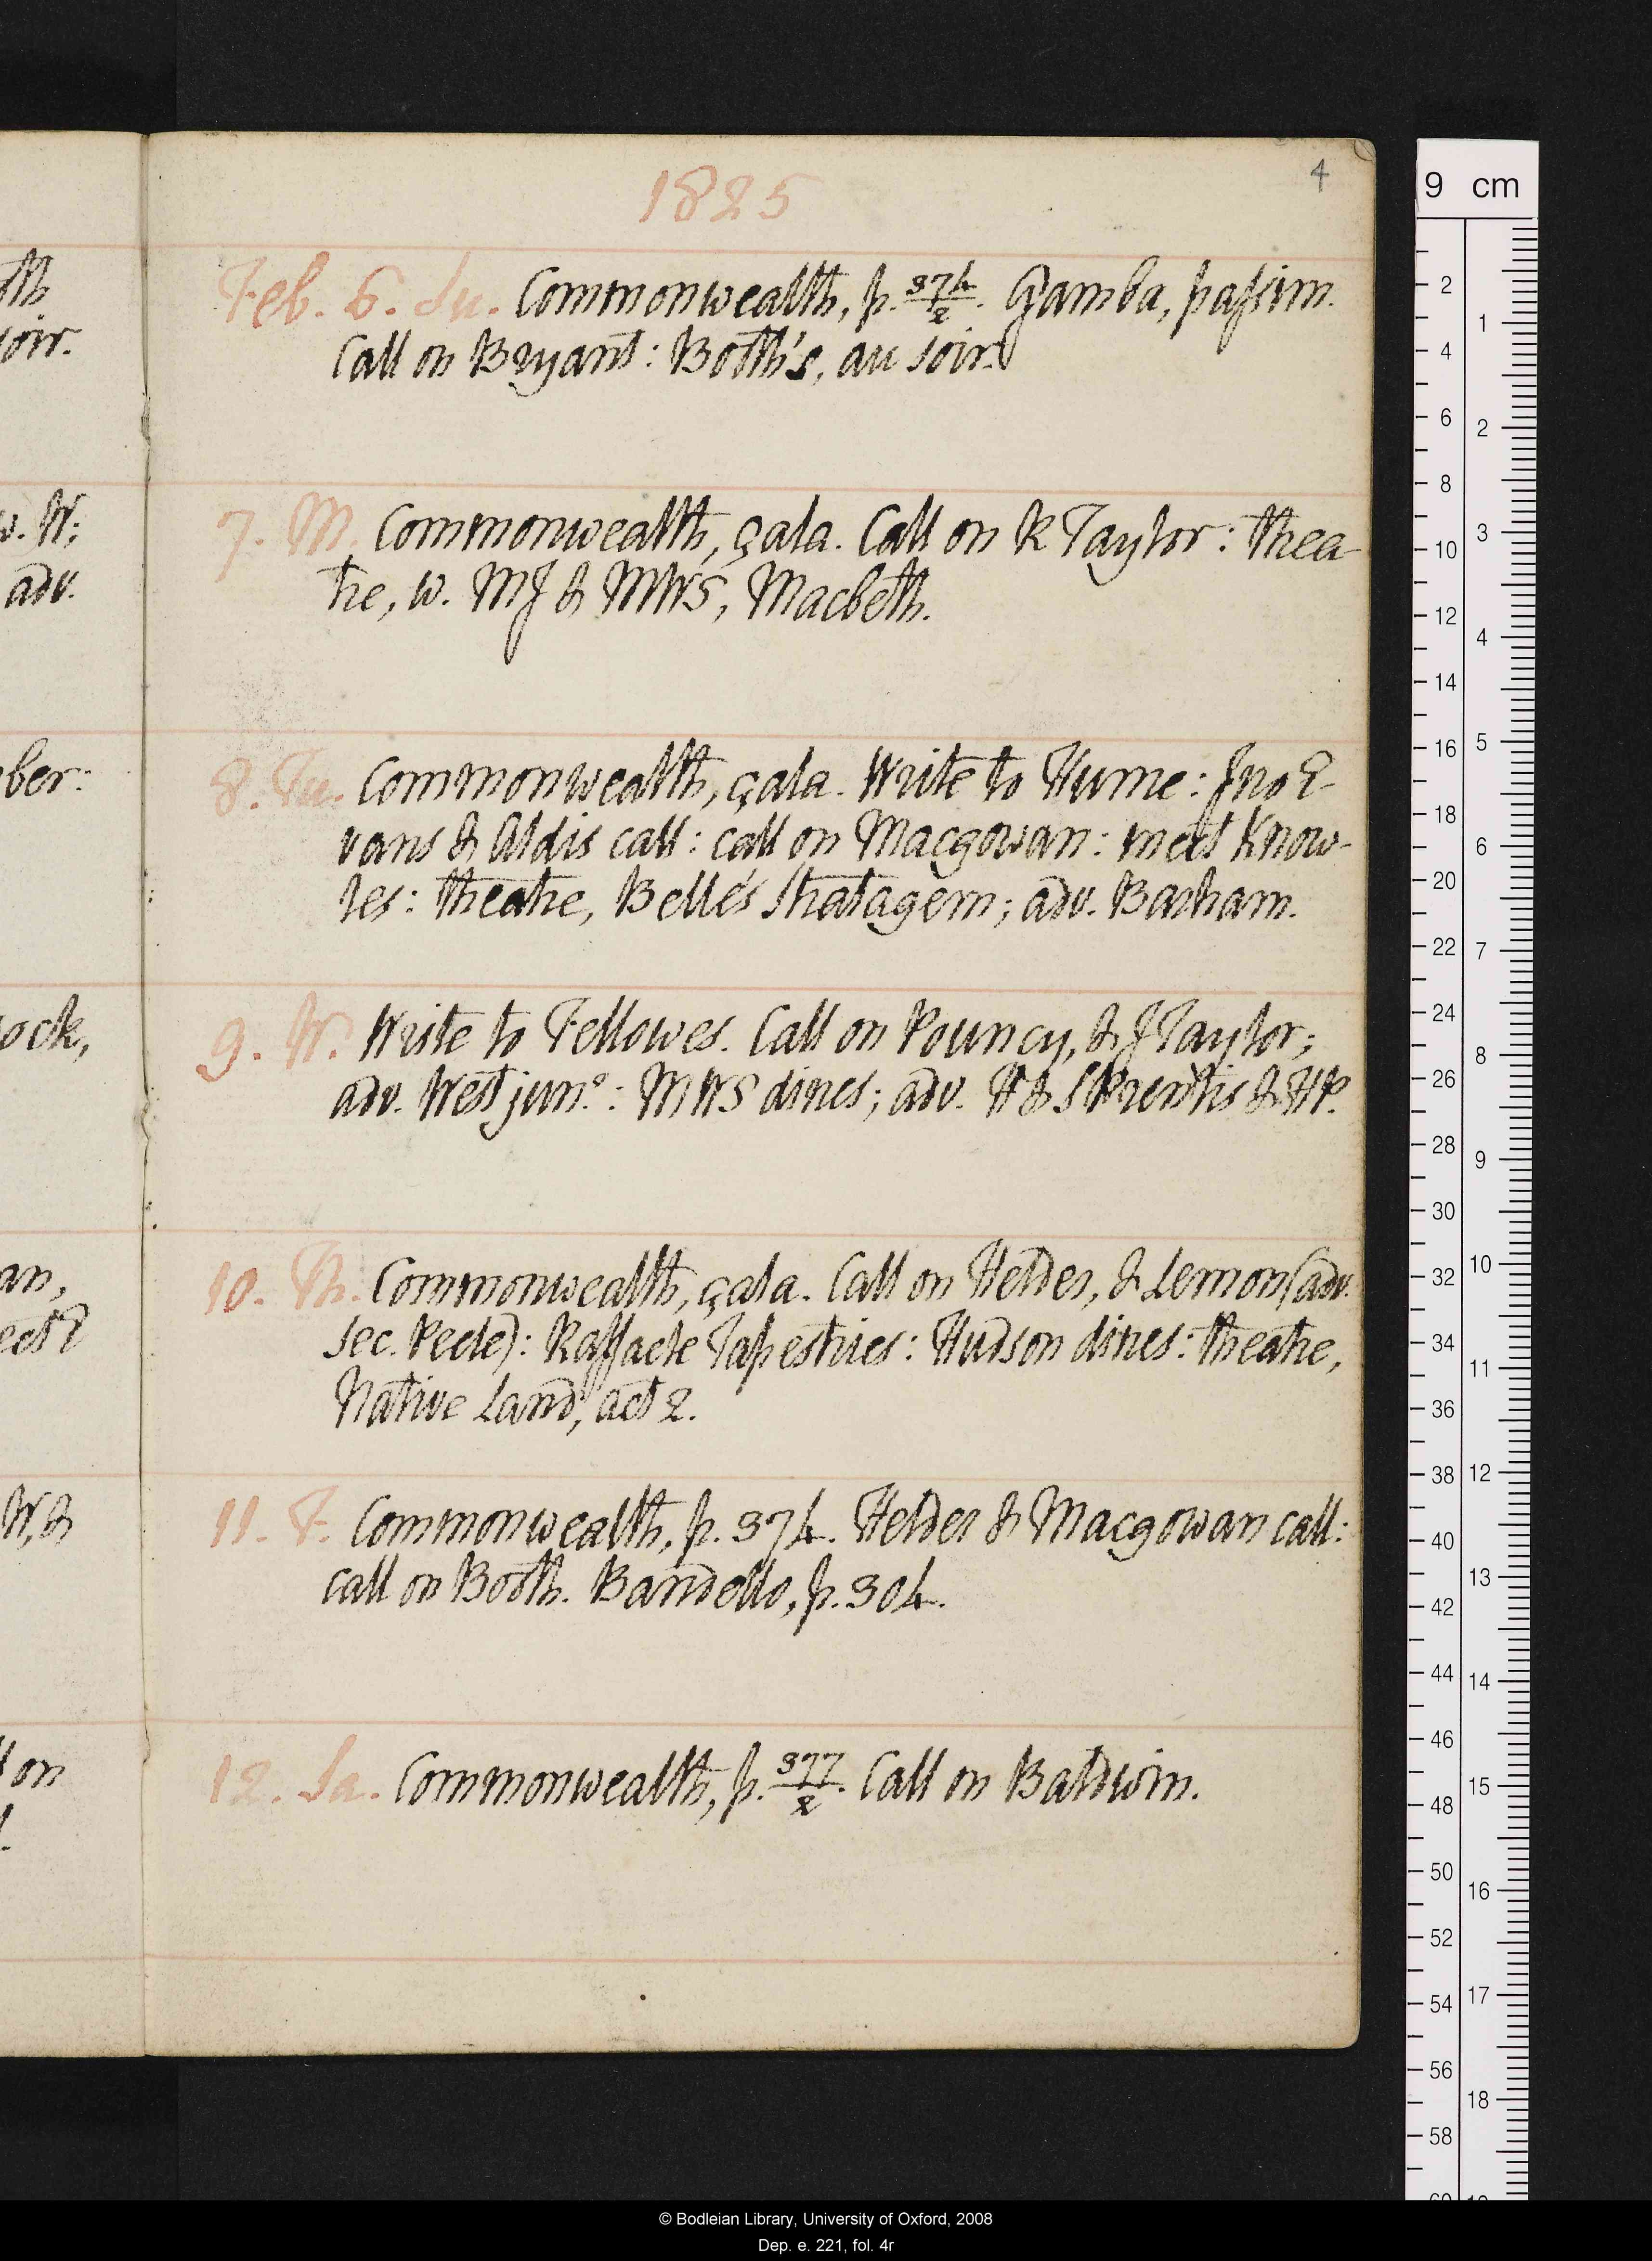 1825
4
Feb. 6. Su. Commonwealth, p. 374/2. Gamba, passim.
Call on Bryant: Booth's, au soir.
7. M. Commonwealth, çala. Call on R Taylor: thea-
tre, w. MJ & MWS, Macbeth.
8. Tu. Commonwealth, çala. Write to Hume: Jno E-
vans & Aldis call: call on Macgowan: meet Know-
les: theatre, Belle's Stratagem; adv. Barham.
9. W. Write to Fellowes. Call on Pouncy, & J Taylor;
adv. West junr.: MWS dines; adv. H & S Prentis & HP.
10. Th. Commonwealth, çala. Call on Helder, & Lemon (adv.
sec. Peele): Raffaele Tapestries: Hudson dines: theatre,
Native Land, act 2.
11. F. Commonwealth, p. 374. Helder & Macgowan call:
call on Booth. Bandello, p. 304.
12. Sa. Commonwealth, p. 377/2. Call on Baldwin.
oth
soir.
w. W;
adv.
ber:
ock,
an,
W, &
on
9 cm
2
4
6
8
10
12
14
16
18
20
22
24
26
28
30
32
34
36
38
40
42
44
46
48
50
52
54
56
58
1
2
3
4
5
6
7
8
9
10
11
12
13
14
15
16
17
18
© Bodleian Library, University of Oxford, 2008
Dep. e. 221, fol. 4r